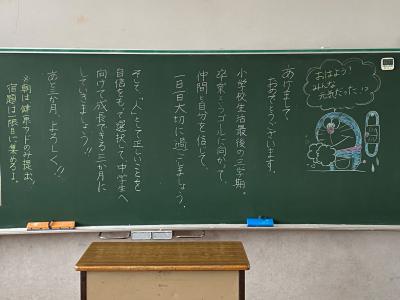 おはよう!
みんな
元気だった?
あけまして
おめでとうございます。
小学校生活最後の三学期。
卒業というゴールに向かって、
仲間と自分を信じて、
一日一日大切に過ごしましょう。
そして、「人」として正しいことを
自信をもって選択して、中学生へ
向けて成長できる三か月に
していきましょう!!
あと三か月、よろしく!!
※朝は健康カードのみ提出。
宿題は一限目に集めるよ。